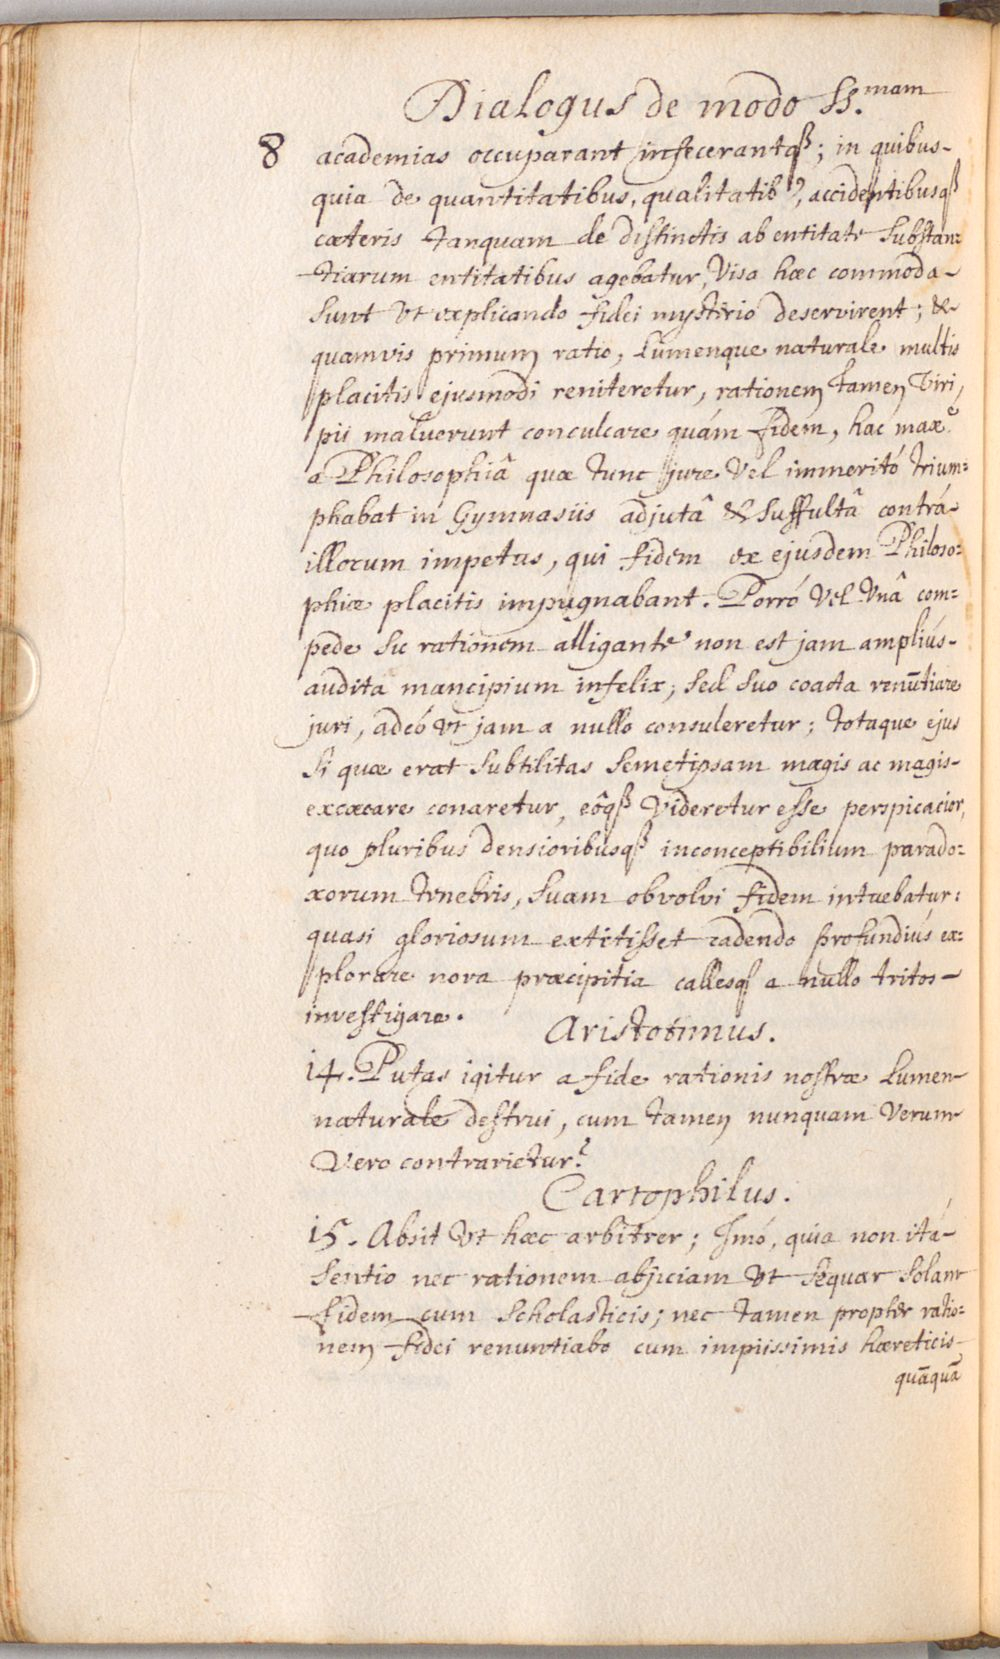 Dialogus de modo SS.mam
8 academias occuparant infecerantq; in quibus
quia de quantitatibus, qualitatib9, accidentibusq
cæteris tanquam de distinctis ab entitate substan=
tiarum entitatibus agebatur, Visa hæc commoda
sunt Vt explicando fidei mysterio deservirent; &
quamvis primum ratio, Lumenque naturale multis
placitis ejusmodi reniteretur, rationem tamen Viri,
pii maluerunt conculcare quám fidem, hac maxe
a Philosophiâ quæ tunc jure Vel immeritó trium=
phabat in Gymnasiis adjutâ & suffultâ contrá
illorum impetus, qui fidem ex ejusdem Philoso=
phiæ placitis impugnabant. Porró Vel Vnâ com=
pede sic rationem alligante non est jam ampliús
audita mancipium infelix; sed suo coacta renūtiare
juri, adeó Vt jam a nullo consuleretur; totaque ejus
si quæ erat subtilitas semetipsam magis ac magis
excæcare conaretur, eôq Videretur esse perspicacior,
quo pluribus densioribusq inconceptibilium parado=
xorum tenebris, suam obvolvi fidem intuebatur:
quasi gloriosum extitisset cadendo profundiús ex=
plorare nova præcipitia callesq a nullo tritos
investigare.
Aristotimus.
14. Putas igitur a fide rationis nostræ Lumen
naturale destrui, cum tamen nunquam Verum
Vero contrarietur?
Cartophilus.
15. Absit Vt hæc arbitrer; Imó, quia non itá
sentio nec rationem abjiciam Vt sequar solam
fidem cum Scholasticis; nec tamen propter ratio=
nem fidei renuntiabo cum impiissimis hæreticis
quāquā